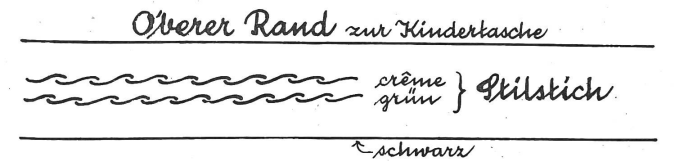 Oberer Rand zur Kindertasche
crême
grün } Stilstich
schwarz